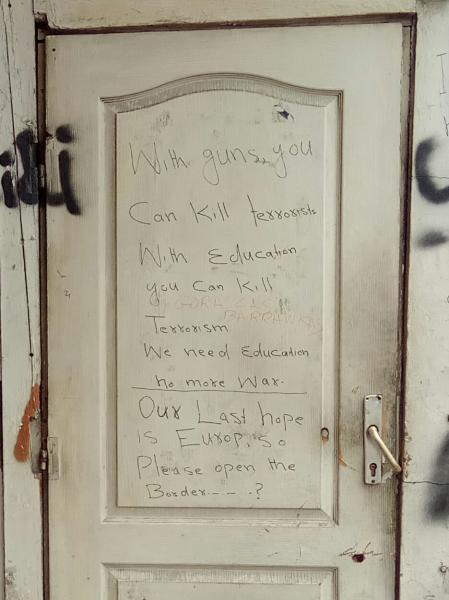 With guns you
Can Kill terrorists
With Education
you Can Kill
Terrorism
We need Education
no more War.
Our Last hope
is Europ, so
Please open the
Border.---?